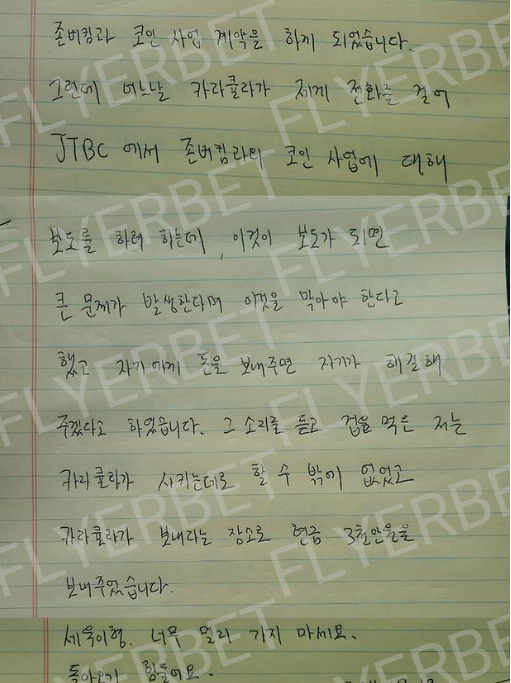 존버킴과 코인 사업 계약을 하게 되었습니다.
그런데 어느날 카라큘라가 제게 전화를 걸어
JTBC에서 존버킴과의 코인 사업에 대해
보도를 하려 하는데, 이것이 보도가 되면
큰 문제가 발생한다며 이것을 막아야 한다고
했고 자기에게 돈을 보내주면 자기가 해결해
주겠다고 하였습니다. 그 소리를 듣고 겁을 먹은 저는
카라큘라가 시키는데로 할 수 밖에 없었고
카라큘라가 보내라는 장소로 현금 3천만원을
보내주었습니다.
세욱이형. 너무 멀리 가지 마세요.
돌아오기 힘들어요.
FLYERBET